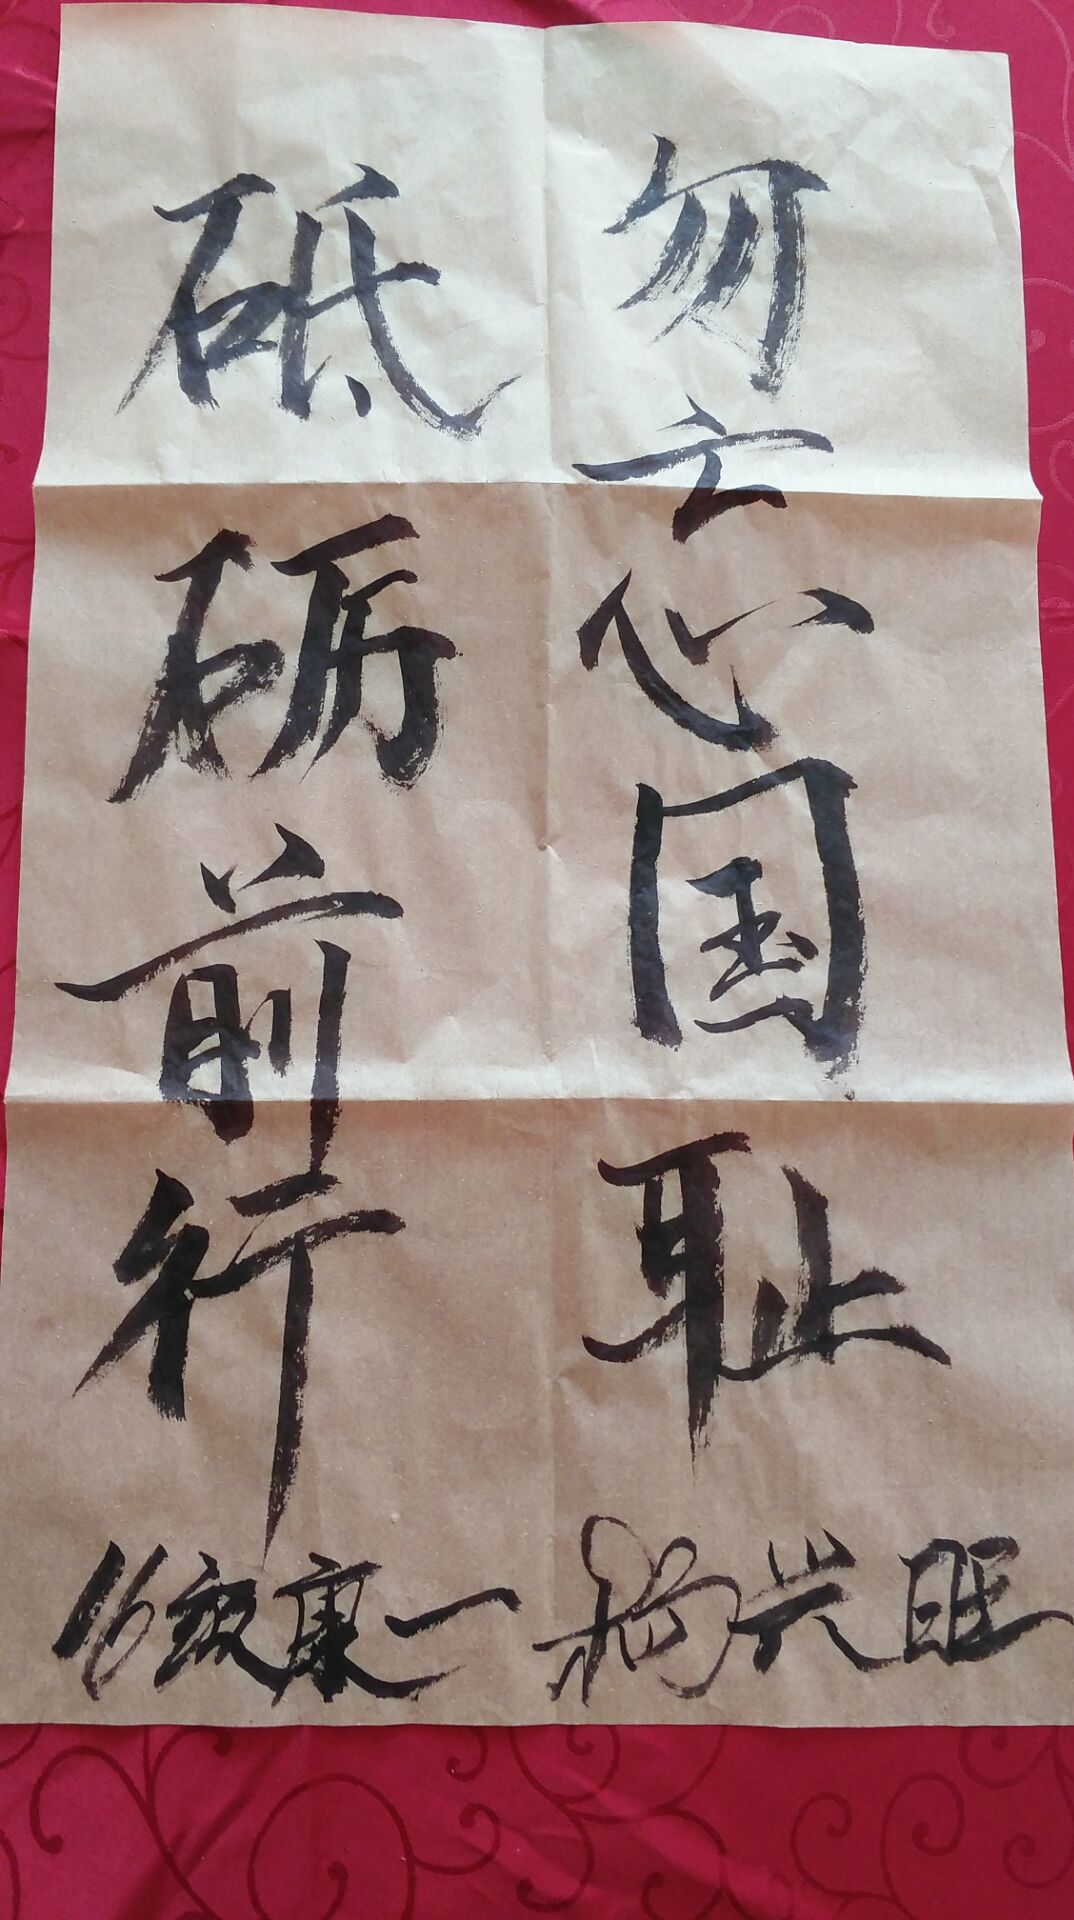 勿忘国耻
砥砺前行
16级康一 杨兴旺